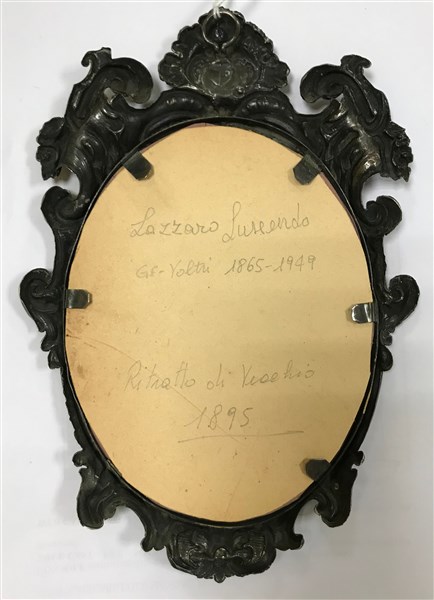 Lazzaro Luxardo
GE-Voltri 1865-1949
Ritratto di Vecchio
1895